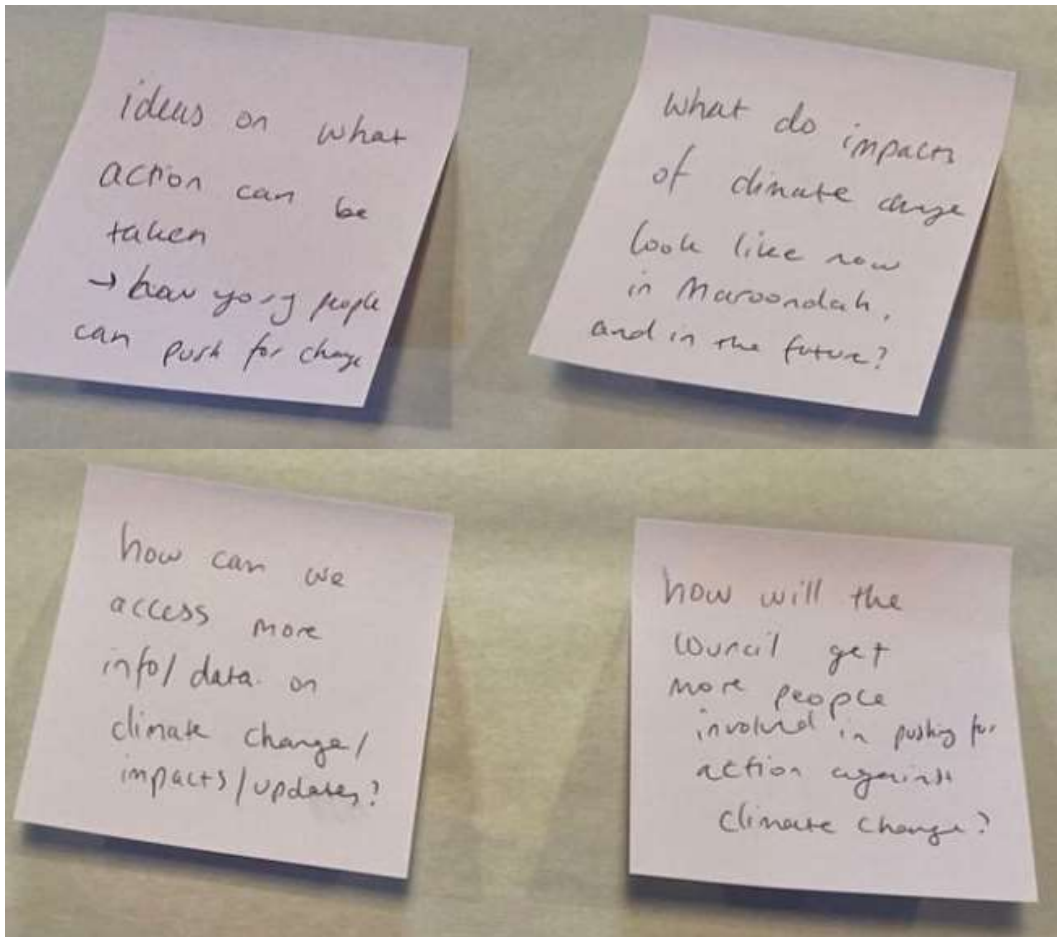 ideas on what
action can be
taken
→ how young people
can push for change
what do impacts
of climate change
look like now
in Maroondah,
and in the future?
how can we
access more
info/data on
climate change/
impacts/updates?
how will the
council get
more people
involved in pushing for
action against
climate change?